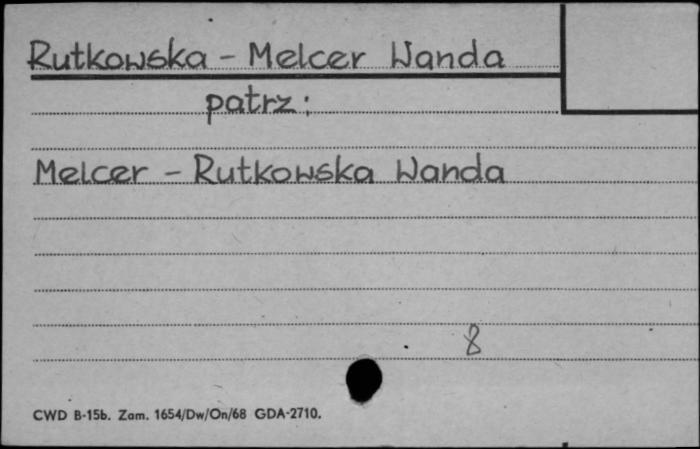 Rutkowska - Melcer Wanda
patrz:
Melcer - Rutkowska Wanda
8
CWD B-15b. Zam. 1654/Dw/On/68 GDA-2710.